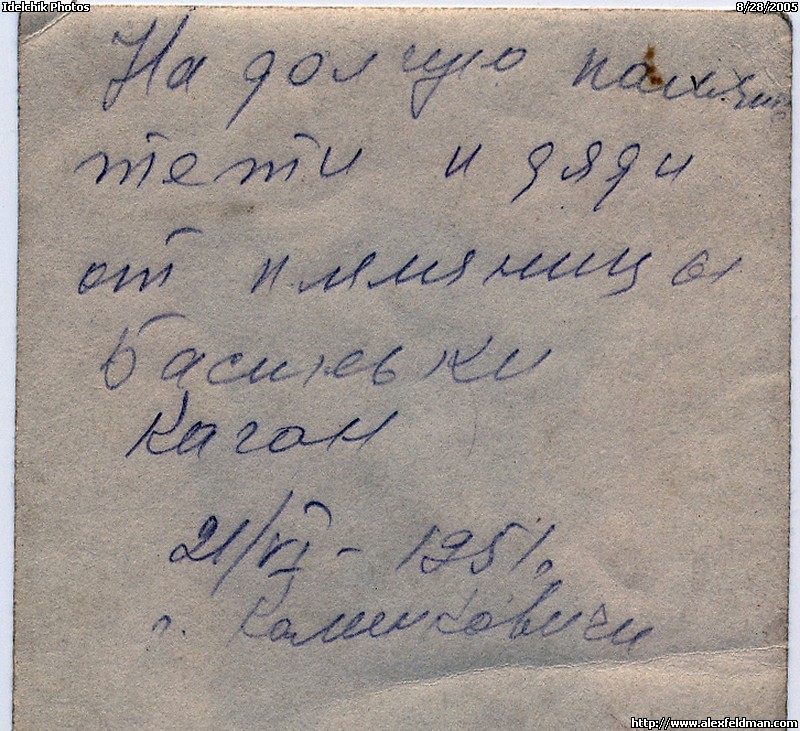 Idelchik Photos 8/28/2005
На долгую память
тети и дяди
от племяницы
Басиньки
Каган
21/VI - 1951.
г. Калинковичи
http://www.alexfeldman.com